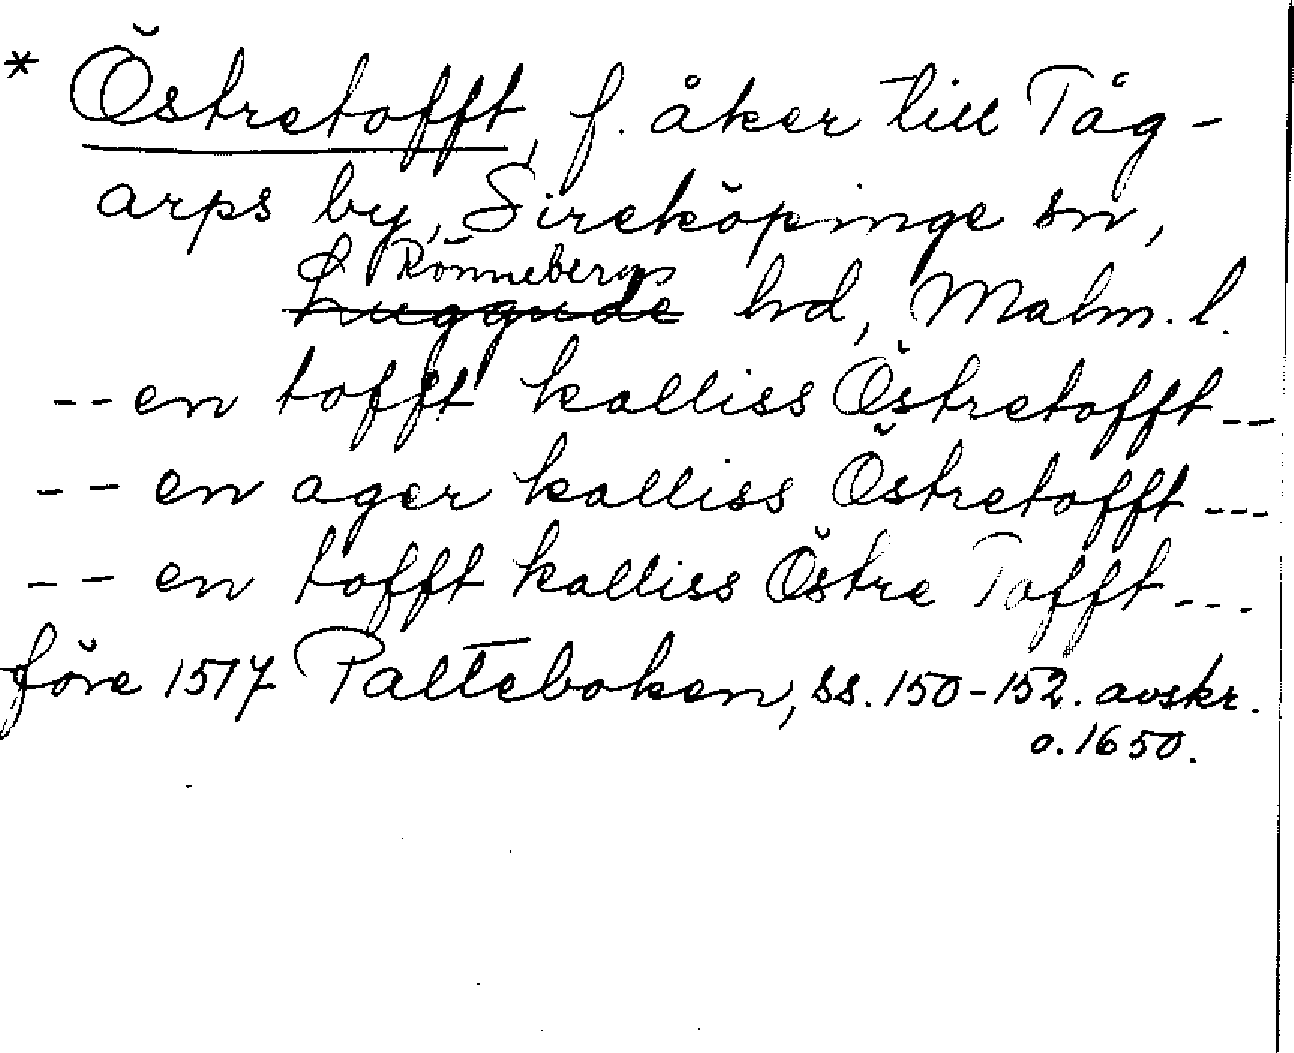 * Östretofft, f. åker till Tåg-
arps by, Sireköpinge sn,
Rönnebergs
Luggude hd, Malm. l.
-- en tofft kalliss Östretofft --
-- en ager kalliss Östretofft ---
-- en tofft kalliss Östre Tofft ---
före 1517 Palteboken, ss. 150-152. avskr.
o. 1650.